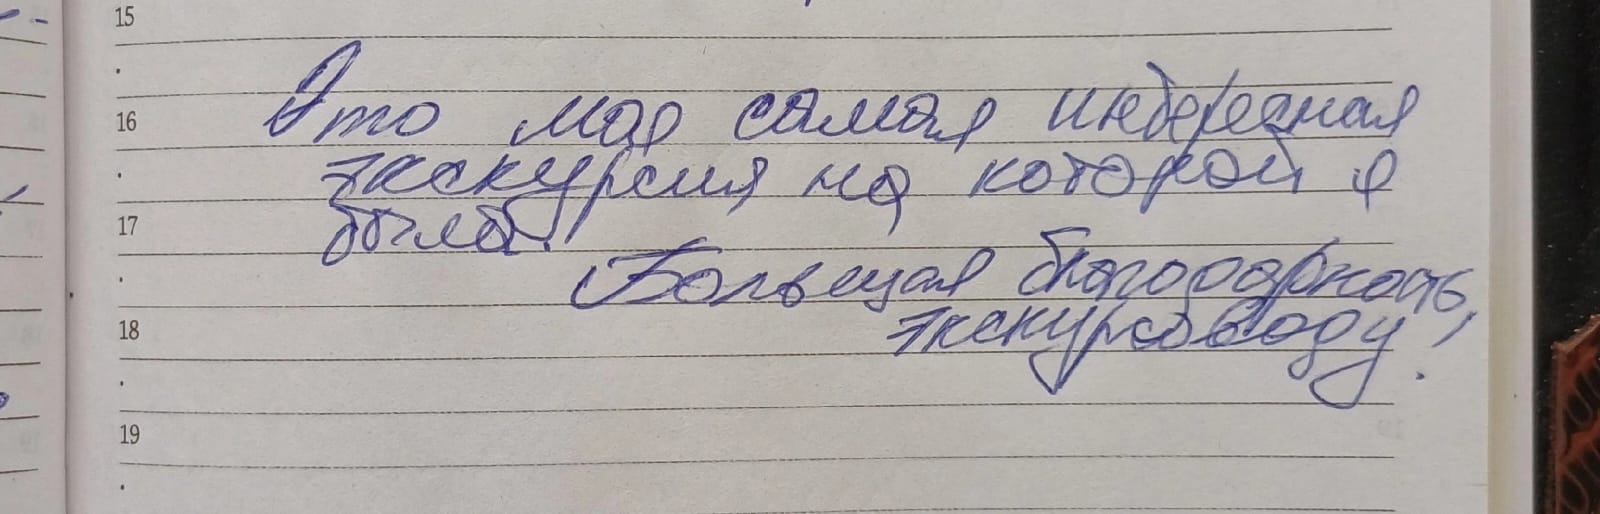 15
16
Это моя самая интересная
экскурсия на которой я
17
была.
Большая благодарность,
18
экскурсоводу!
19